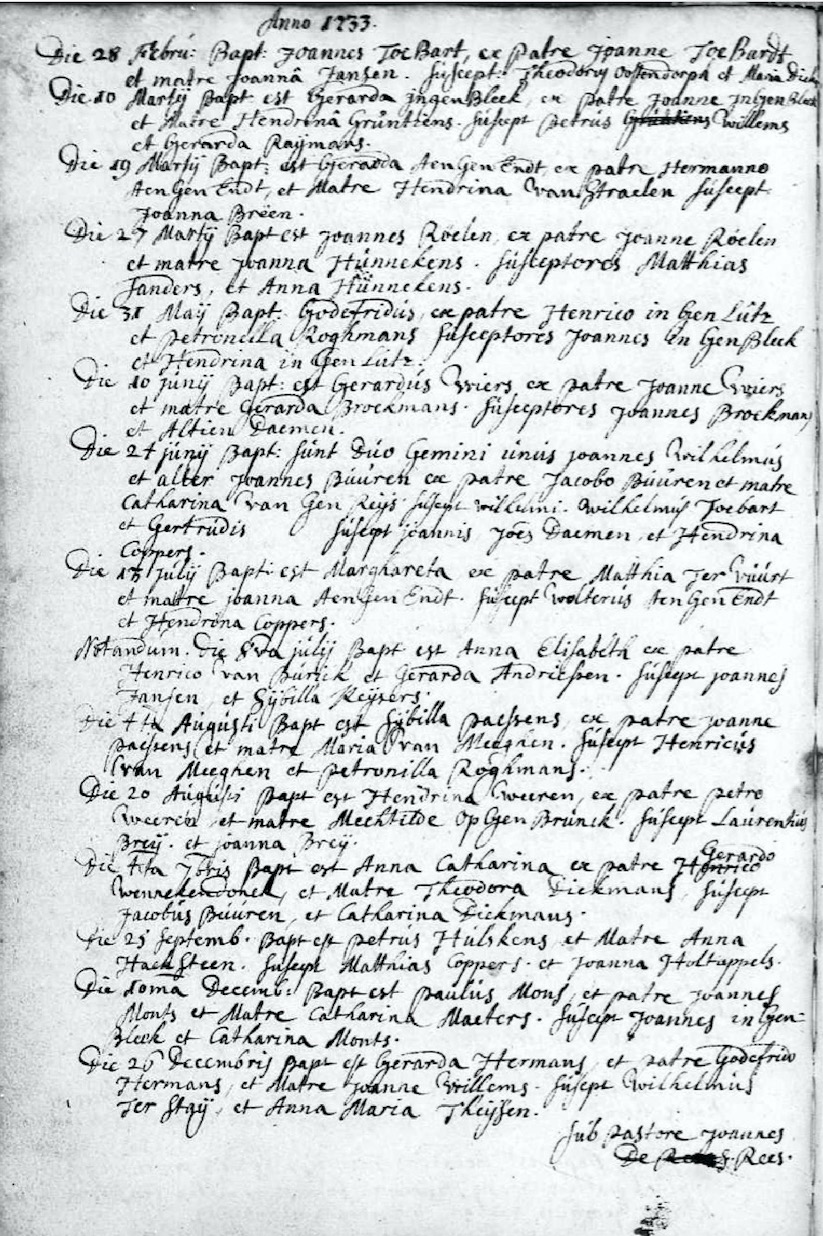 Anno 1733.
Die 28 Febru: Bapt: Joannes Toe Bart, ex patre Joanne Toe Bardt
et matre Joanna Jansen. Suscept: Theodorus Oostendorph et Maria Dick
Die 10 Martij Bapt est Gerarda IngenBleek, ex patre Joanne InGenBleek
et Matre Hendrina Grünttiens. Suscept petrus Willems
et Gerarda Raijmans.
Die 19 Martij Bapt: est Gerarda AenGenEndt, ex patre Hermanno
AenGenEndt, et Matre Hendrina Van Straelen Suscept:
Joanna Breen.
Die 27 Martij Bapt est Joannes Röelen, ex patre Joanne Röelen
et matre Joanna Hünnekens. Susceptores Matthias
Janders, et Anna Hünnekens.
Die 31 Maij Bapt: Godefridus, ex patre Henrico in Gen Lütz
et petronella Roghmans Susceptores Joannes in GenBleek
et Hendrina in Gen Lütz.
Die 10 junij Bapt: est Gerardüs Wiers ex patre Joanne Wiers
et matre Gerarda Broekmans. Susceptores Joannes Broekmans
et Altien Daemen.
Die 24 junij Bapt: sünt Düo Gemini ünüs joannes Wilhelmüs
et alter Joannes Büüren ex patre Jacobo Büüren et matre
Catharina van Gen Reijs suscept willelmi. Wilhelmüs Toebart
et Gertrüdis suscept joannis Joes Daemen, et Hendrina
Coppers.
Die 13 Jülij Bapt: est Marghareta ex patre Matthia Ter Vüürt
et matre joanna AenGenEndt. suscept Wolterüs AenGenEndt
et Hendrina Coppers.
Notandum. Die 8va julij Bapt est Anna Elisabeth ex patre
Henrico Van Bürick et Gerarda Andriessen. Suscept joannes
Jansen, et Sijbilla Keijsers.
Die 4ta Augusti Bapt est Sijbilla paessens, ex patre joanne
paessens, et matre Maria Van Meeghen. Suscept Henricüs
Van Meeghen et petronilla Roghmans.
Die 20 Augusti Bapt est Hendrina Weeren, ex patre petro
Weeren, et matre Mechtilde OpGenBrünck. Suscept Laürentiüs
Breij. et joanna Breij.
Gerardo
Die 7bris Bapt est Anna Catharina ex patre Henrico
Wennekendonck, et Matre Theodora Dickmans, Suscept
Jacobüs Büüren, et Catharina Dickmans.
Die 25 Septemb. Bapt est petrüs Hülskens, et Matre Anna
Hack Steen. Suscept Matthias Coppers. et Joanna Holtappels.
Die 10ma Decemb: Bapt est paulüs Mons, et patre joannes
Monts et Matre Catharina Maeters. Suscept Joannes in Gen-
Bleek et Catharina Monts.
Die 26 Decembris Bapt est Gerarda Hermans, et patre Godefrido
Hermans, et Matre Joanne Willems. Suscept Wilhelmüs
Ter Staij, et Anna Maria Theijssen.
süb pastore Joannes
De Rees.